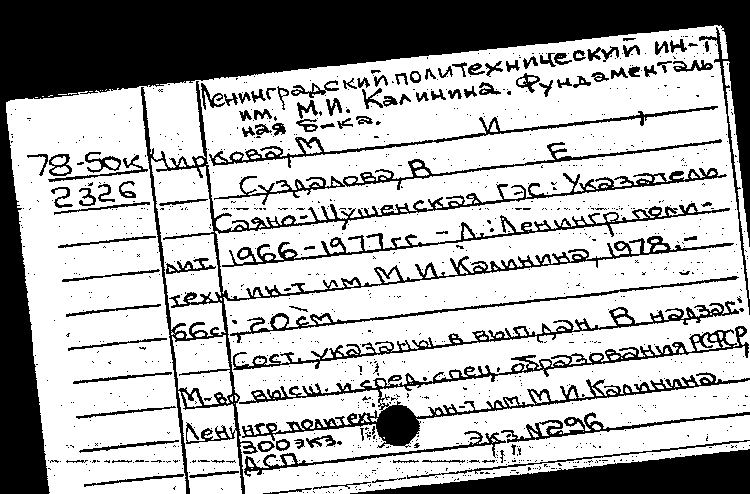 Ленинградский политехнический ин-т
им. М.И. Калинина. Фундаменталь-
ная б-ка.
78-50к Чиркова, М И ,
2326 Суздалова, В Е
Саяно-Шушенская ГЭС: Указатель
лит. 1966-1977 гг. - Л.: Ленингр. поли-
техн. ин-т им. М. И. Калинина, 1978.-
66с.; 20 см.
Сост. указаны в вып. дан. В надзаг.:
М-во высш. и сред. спец. образования РСФСР,
Ленингр. политехн ин-т им. М. И. Калинина.
300 экз. экз. N296.
ДСП.